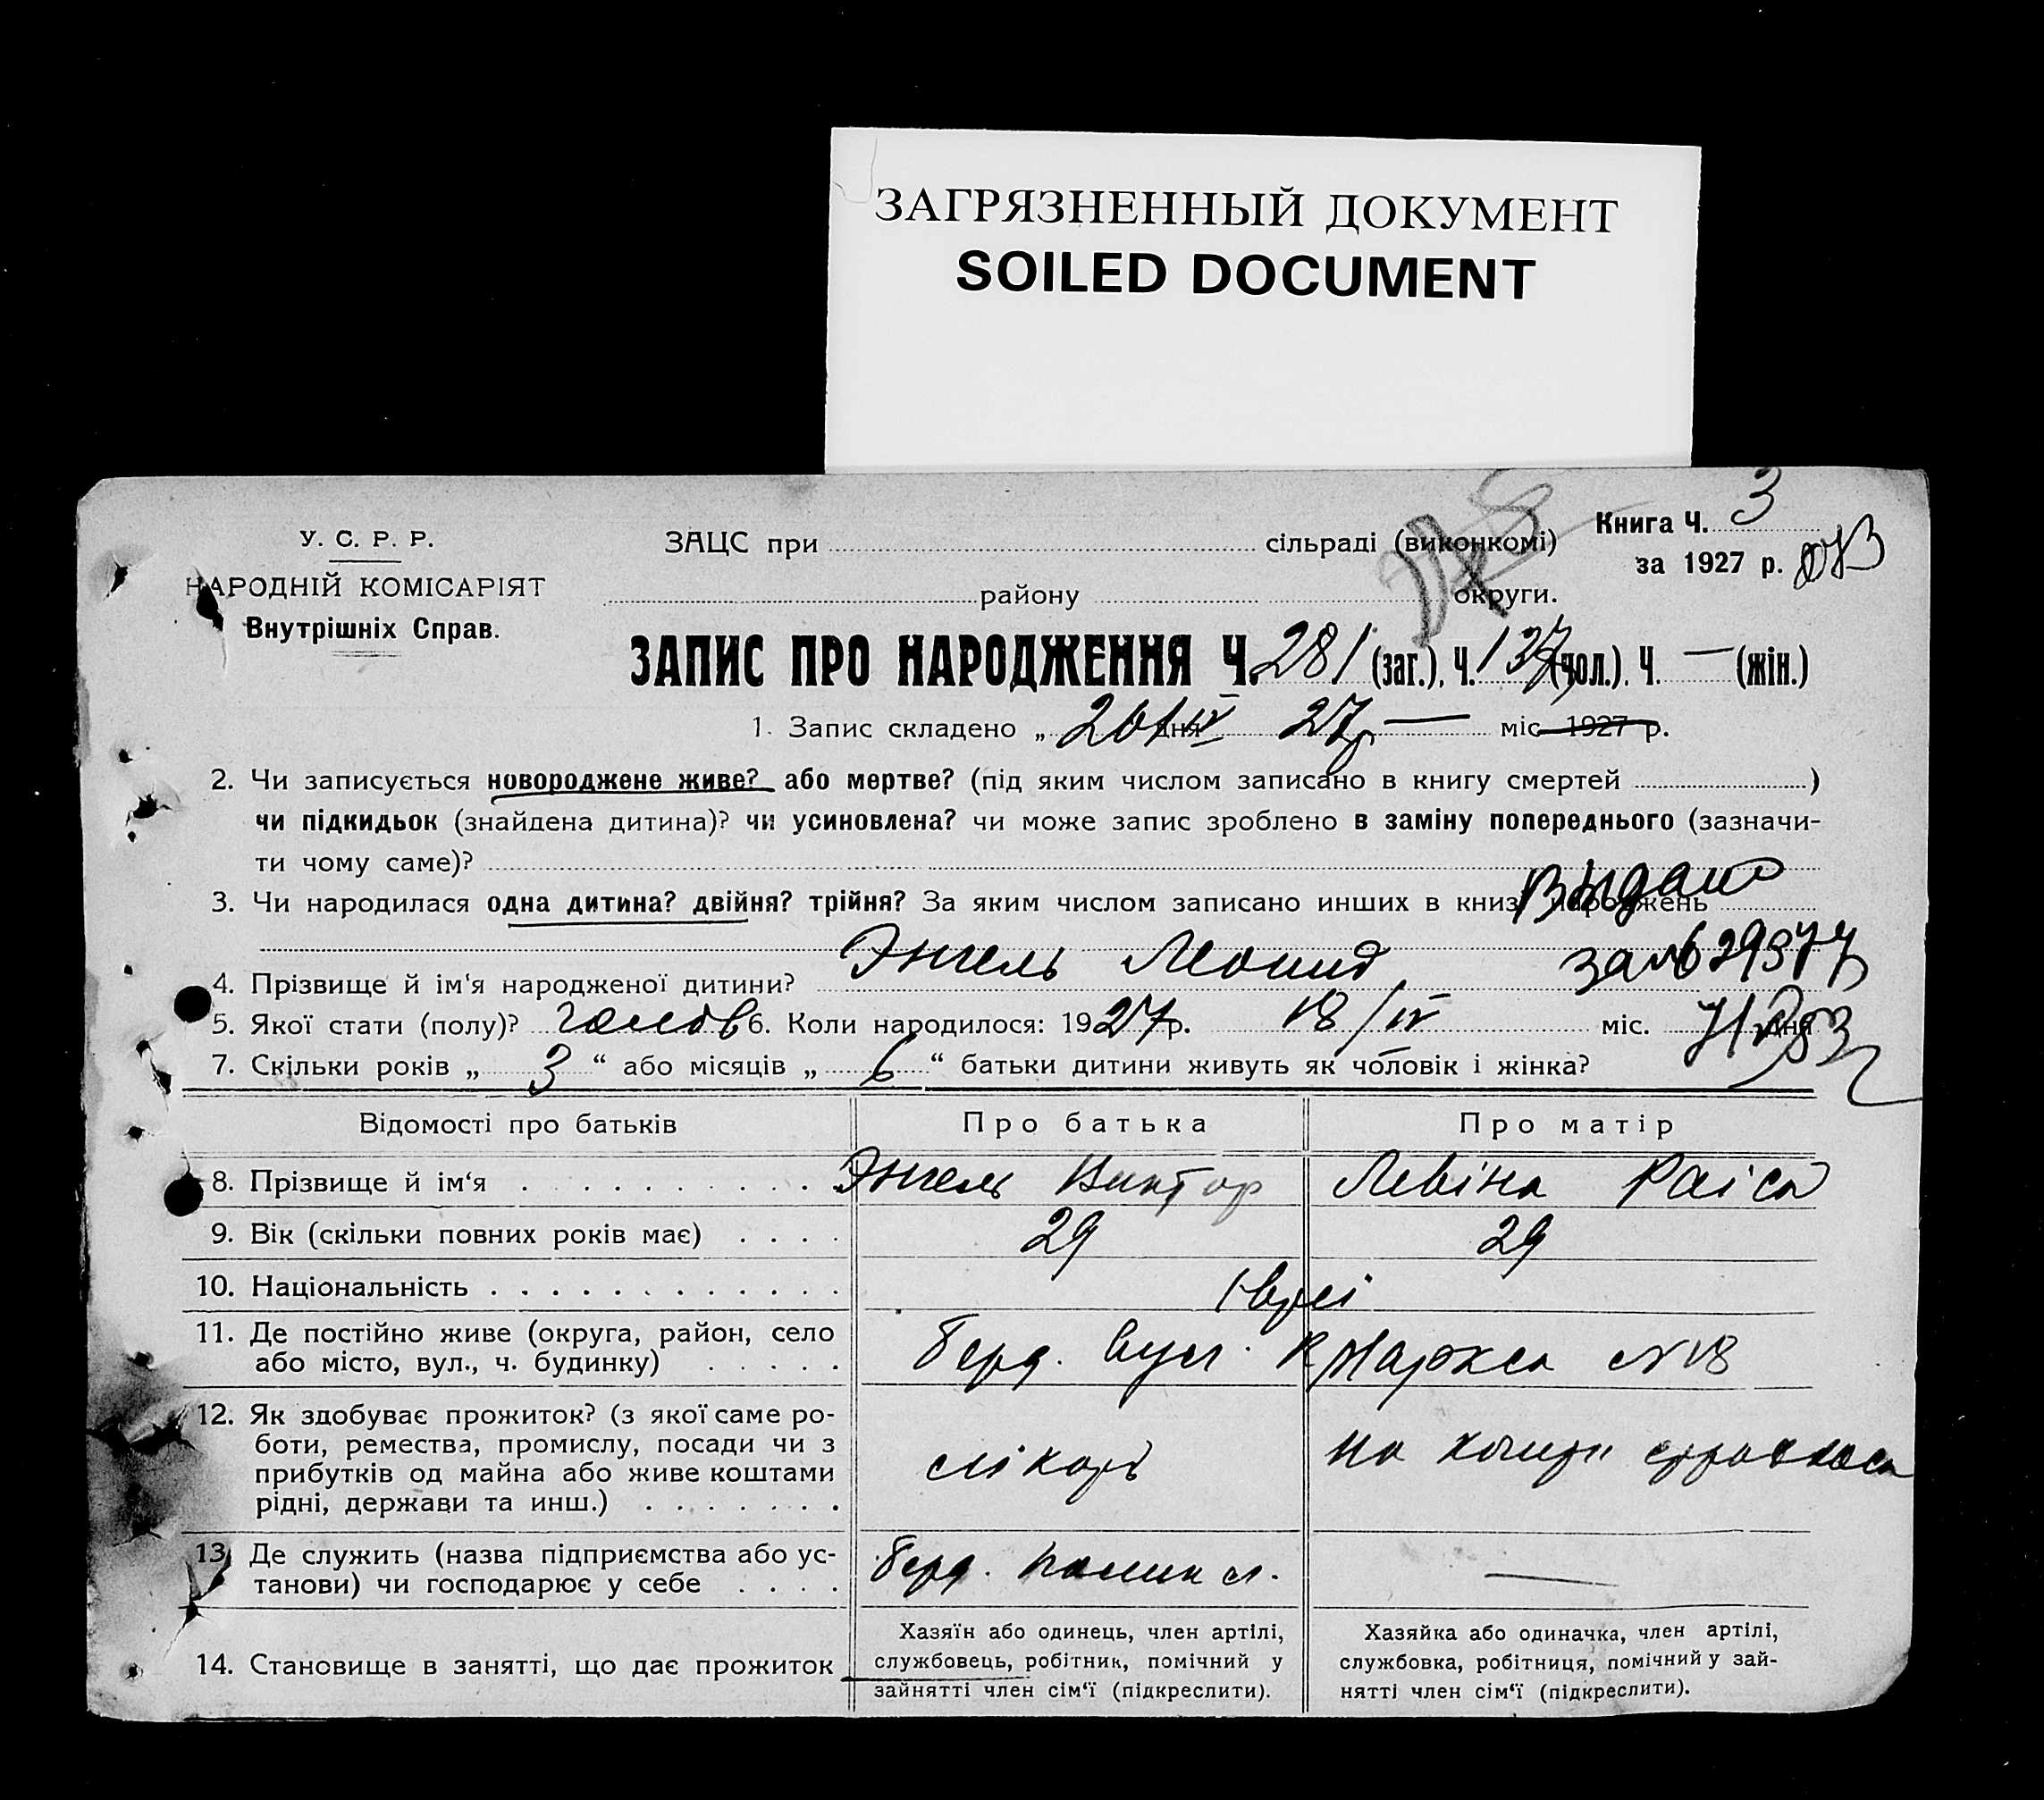 ЗАГРЯЗНЕННЫЙ ДОКУМЕНТ
SOILED DOCUMENT
У. С. Р. Р.
НАРОДНІЙ КОМІСАРІЯТ
Внутрішніх Справ.
ЗАЦС при сільраді (виконкомі)
району округи.
Книга Ч. 3
за 1927 р.
ЗАПИС ПРО НАРОДЖЕННЯ Ч. 281 (заг.). Ч. 137 (чол.). Ч. — (жін.)
1. Запис складено „ 20/IV дня 27р — міс 1927 р.
2. Чи записується новороджене живе? або мертве? (під яким числом записано в книгу смертей )
чи підкидьок (знайдена дитина)? чи усиновлена? чи може запис зроблено в заміну попереднього (зазначи-
ти чому саме)?
3. Чи народилася одна дитина? двійня? трійня? За яким числом записано инших в книзі народжень
Видано
4. Прізвище й ім'я народженої дитини? Энгель Леонид
за №
5. Якої стати (полу)? чолов 6. Коли народилося: 1927 р. 18/IV міс. дня
7. Скільки років „ 3 “ або місяців „ 6 “ батьки дитини живуть як чоловік і жінка?
Відомості про батьків Про батька Про матір
8. Прізвище й ім'я Энгель Виктор Левіна Раіса
9. Вік (скільки повних років має) 29 29
10. Національність Євреї
11. Де постійно живе (округа, район, село
або місто, вул., ч. будинку) Берд. вул. К Маркса №18
12. Як здобуває прожиток? (з якої саме ро-
боти, ремества, промислу, посади чи з
прибутків од майна або живе коштами
рідні, держави та инш.) лікарь на кошти
13. Де служить (назва підприємства або ус-
танови) чи господарює у себе Берд. —
14. Становище в занятті, що дає прожиток
Хазяїн або одинець, член артілі,
службовець, робітник, помічний у
зайнятті член сім'ї (підкреслити).
Хазяйка або одиначка, член артілі,
службовка, робітниця, помічний у зай-
нятті член сім'ї (підкреслити).